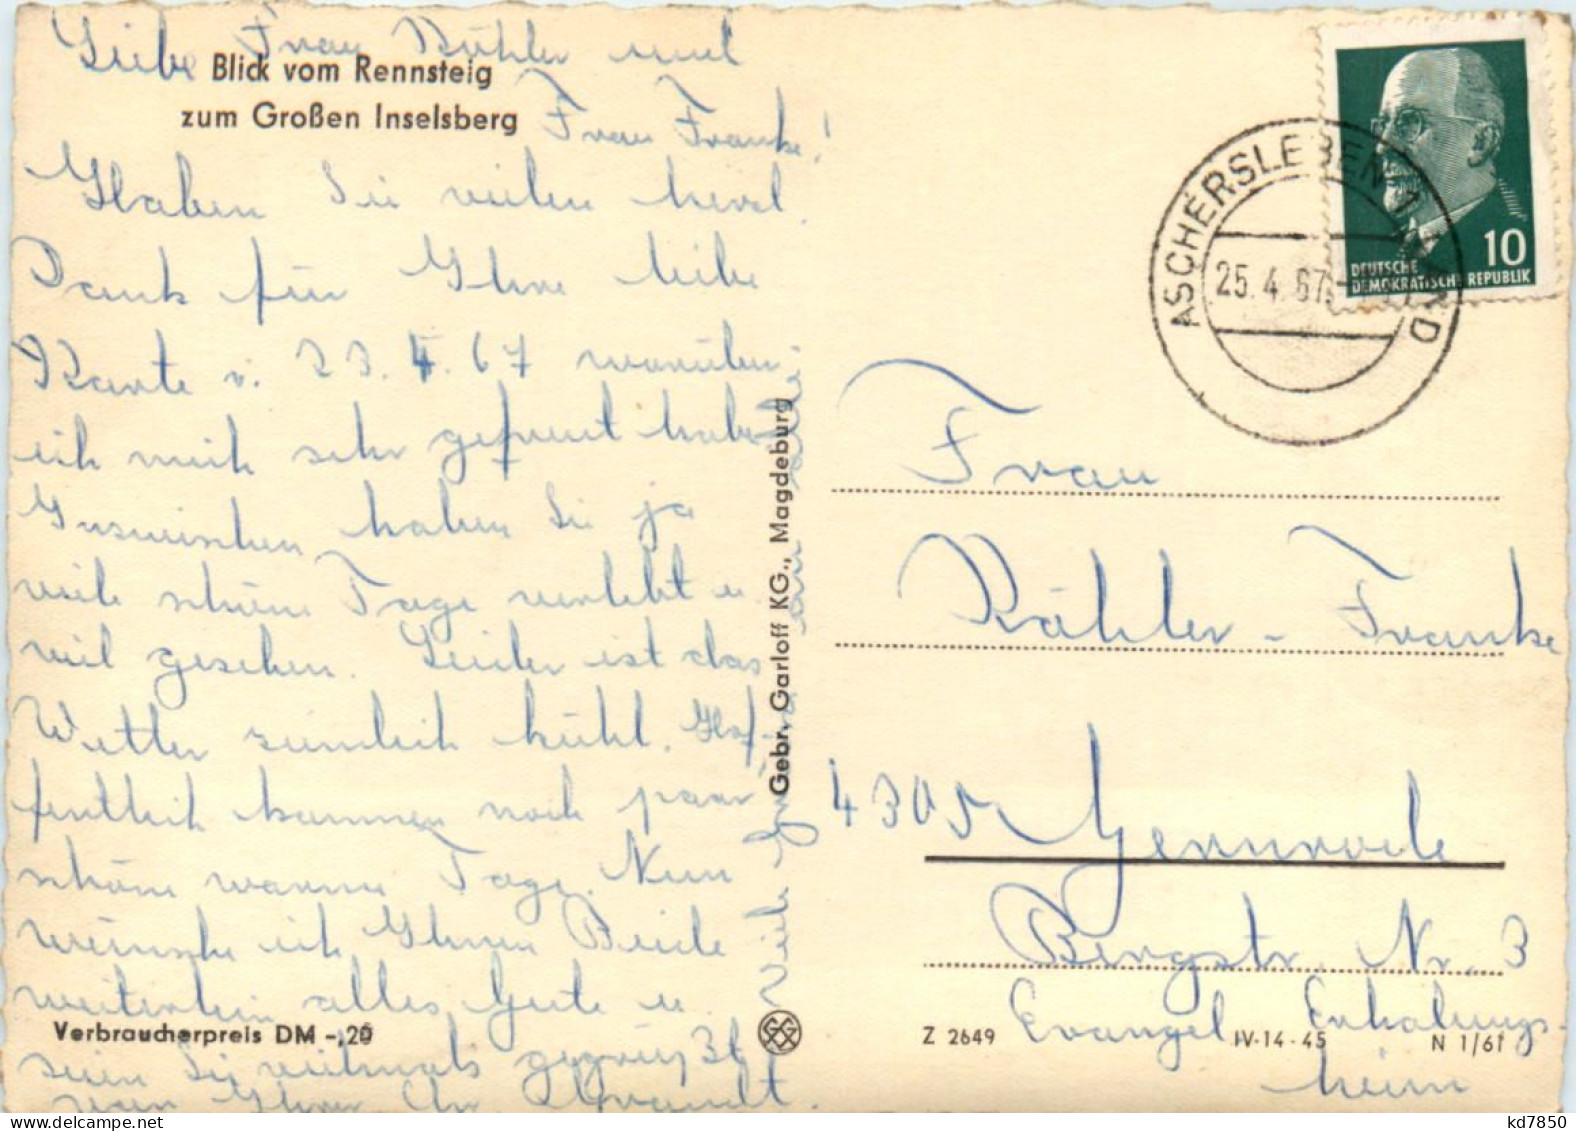 Liebe Frau Kähler und
Blick vom Rennsteig
zum Großen Inselsberg
Frau Franke!
Haben Sie vielen herzl.
Dank für Ihre liebe
Karte v. 23. 4. 67 worüber
ich mich sehr gefreut habe
Inzwischen haben Sie ja
viele schöne Tage verlebt u.
viel gesehen. Leider ist das
Wetter ziemlich kühl. Hof-
fentlich kommen noch paar
schöne warme Tage. Nun
wünsche ich Ihnen Beide
weiterhin alles Gute u.
Verbraucherpreis DM -,20
seien Sie vielmals gegrüßt
von Ihrer
Viele
an alle
Gebr. Garloff KG., Magdeburg
ASCHERSLEBEN 1
25.4.67
10
DEUTSCHE
DEMOKRATISCHE REPUBLIK
Frau
Kähler - Franke
4305 Gernrode
Bergstr. Nr. 3
Evangel. Erholungs-
heim
Z 2649 IV-14-45 N 1/61
kd7850